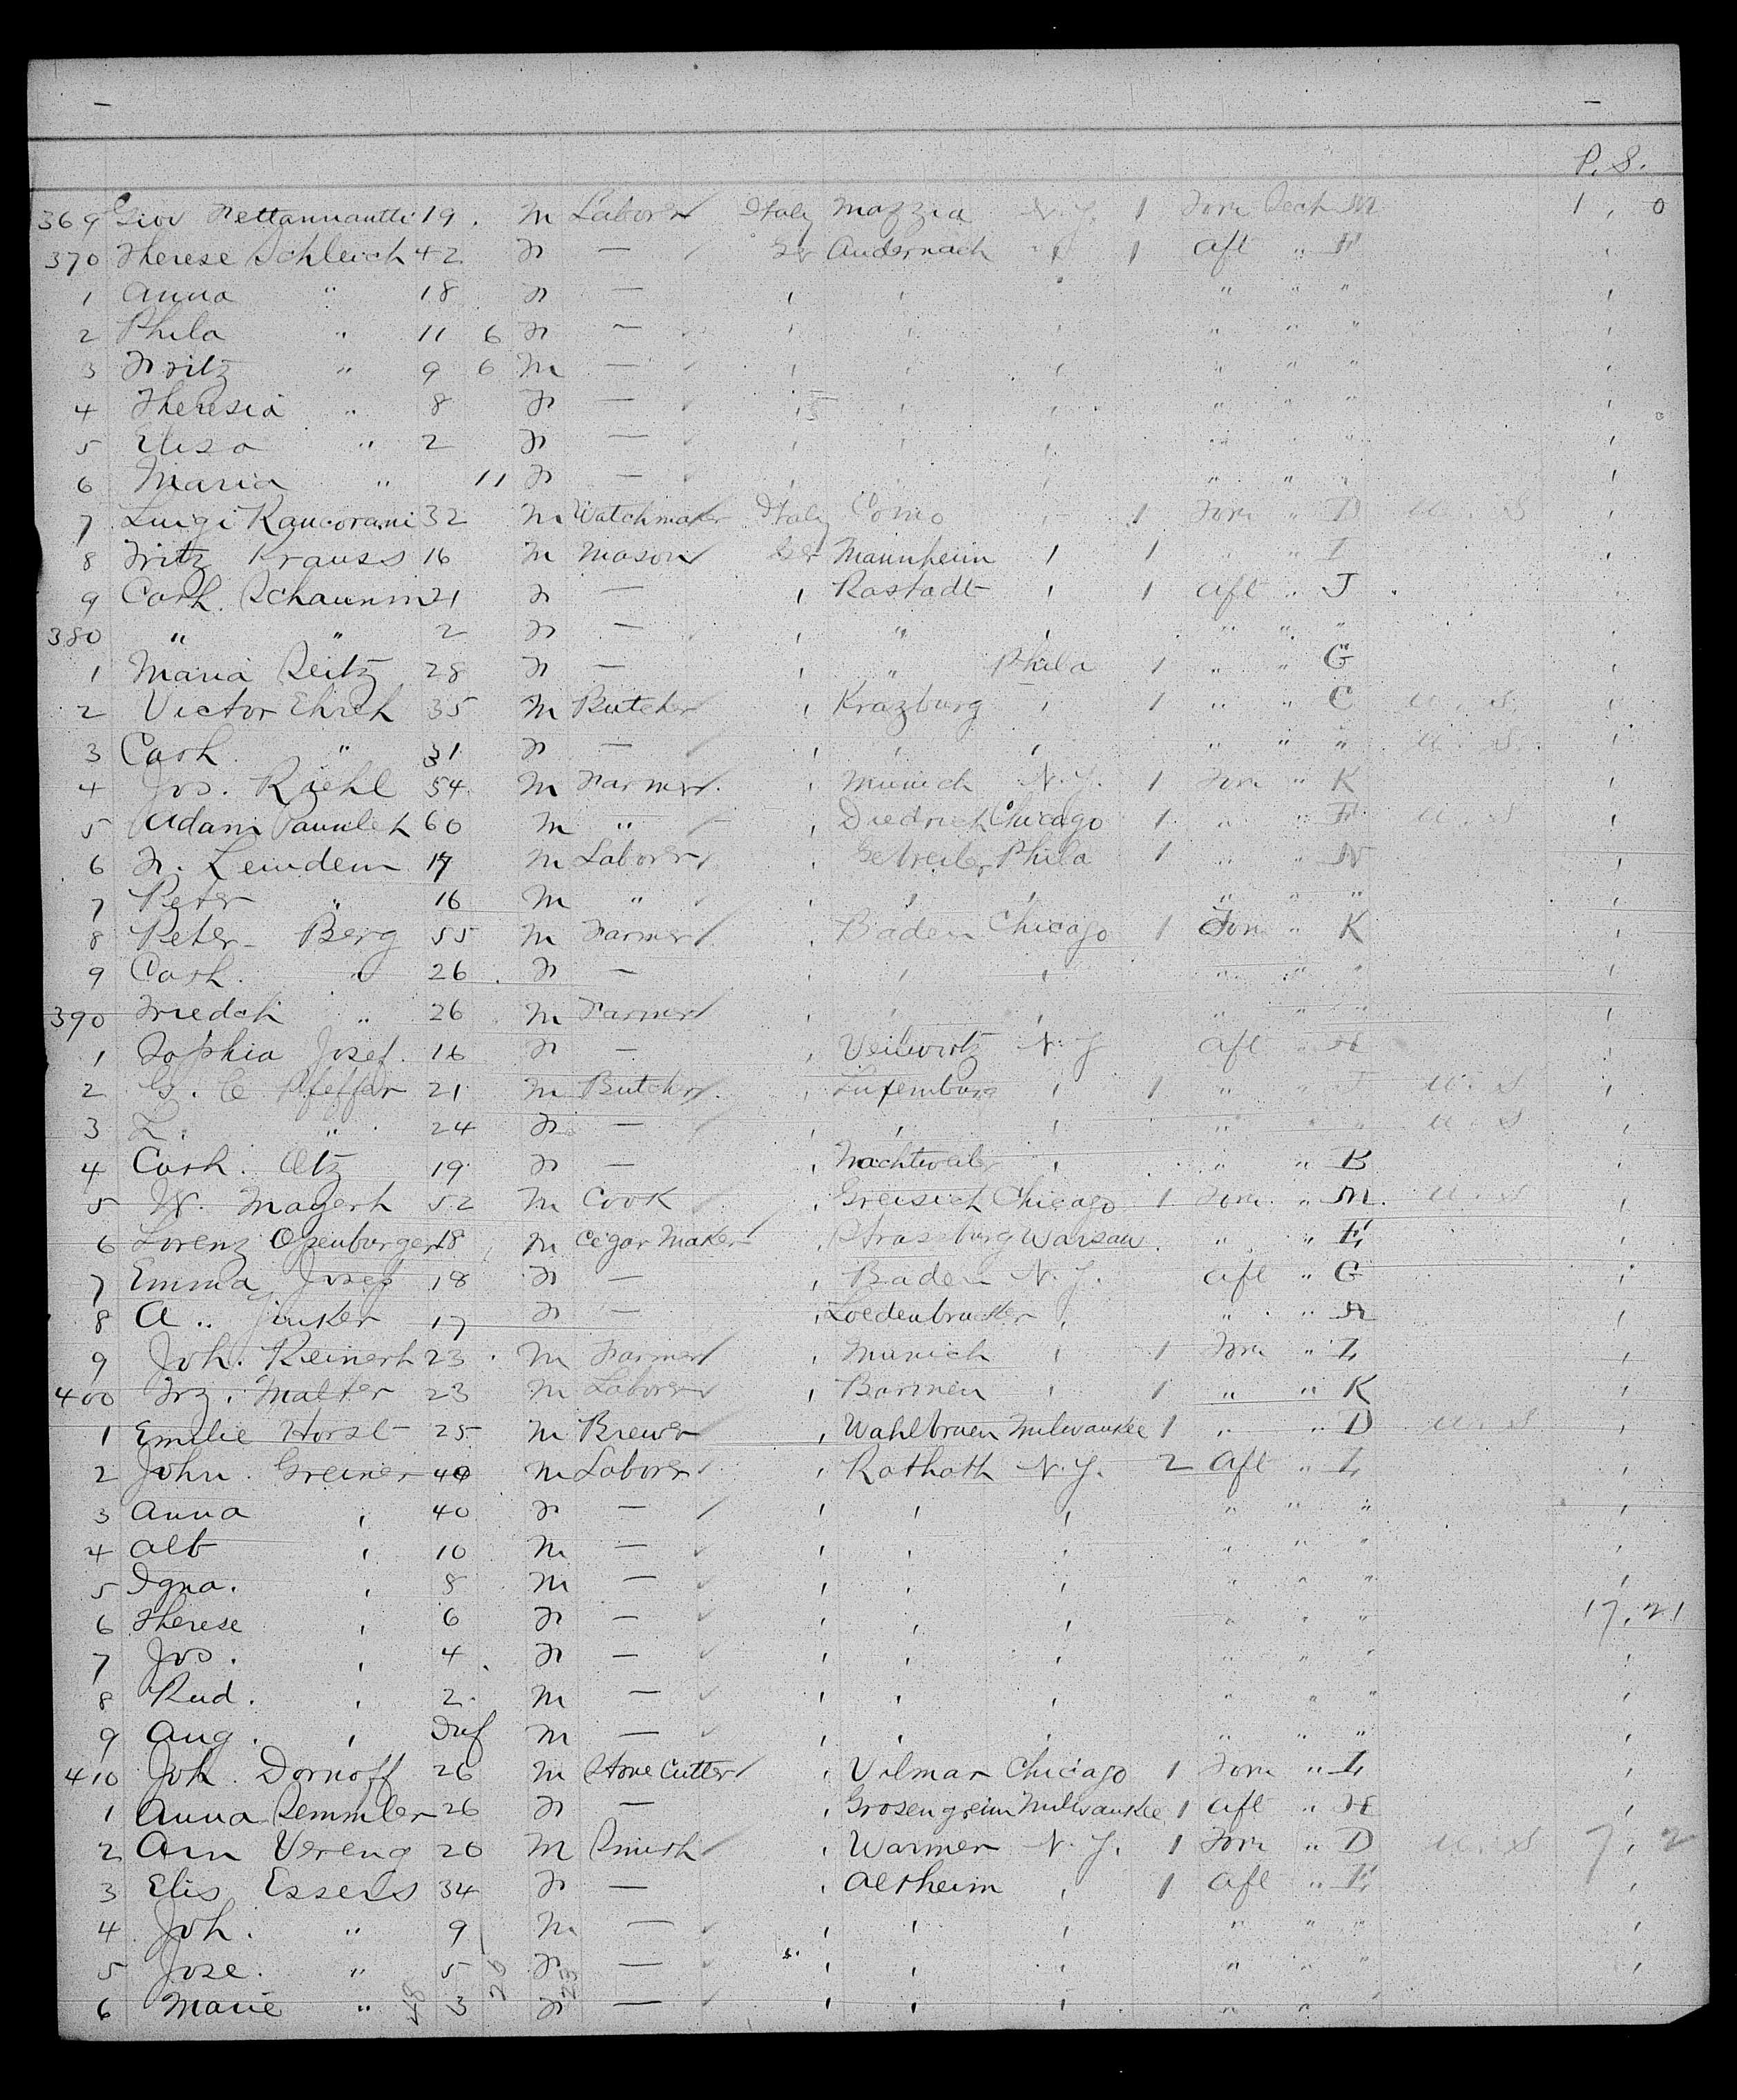 P. S.
369 Giov Fettannautti 19 M Laborer Italy Mazzia N.Y. 1 Forw Deck M 1, 0
370 Therese Schleich 42 F — Ger Andernach " 1 aft " F
1 Anna " 18 F — " " "
2 Phila " 11 6 F — " " "
3 Fritz " 9 6 M — " " "
4 Theresia " 8 F — " " "
5 Elisa " 2 F — " " "
6 Maria " 11 F — " " "
7 Luigi Rancorani 32 M Watchmaker Italy Como " 1 Forw " D U. S
8 Fritz Krauss 16 M Mason Ger Mannheim " 1 " " I
9 Cath. Schaunm 21 F — " Rastadt " 1 aft " J
380 " " 2 F — " " " " " "
1 Maria Seitz 28 F — " " Phila 1 " " G
2 Victor Ehrch 35 M Butcher " Krazburg " 1 " " C U. S.
3 Cath. " 31 F — " " " " " " U. S.
4 Jos. Riehl 54 M Farmer " Munich N.Y. 1 Forw " K
5 Adam 60 M " " Diedrich Chicago 1 " " F U. S
6 F. Leindem 17 M Laborer " Phila 1 " " N
7 Peter " 16 M " " " " " " "
8 Peter Berg 55 M Farmer " Baden Chicago 1 Forw " K
9 Cath. " 26 F — " " " " " "
390 Friedch " 26 M Farmer " " " " " "
1 Sophia Josef 16 F — " N.Y aft " H
2 G. C Pfeffer 21 M Butcher " Luxemburg " 1 " " U. S
3 L. " 24 F — " " " " " " U. S
4 Cath. Otz 19 F — " Nachtweiler " " " B
5 W. Mayerh 52 M Cook " Greisich Chicago 1 Forw " M. U. S
6 Lorenz Openburger 18 M Cegar Maker " Strassburg Warsaw " " E
7 Emma Josef 18 F — " Baden N.Y. aft " G
8 A.. Junker 17 F — " Loedenbrucker " " " A
9 Joh. Reinerh 23 M Farmer " Munich " 1 Forw " L
400 Frz. Malter 23 M Laborer " Barmen " 1 " " K
1 Emilie Horst 25 M Brewer " Wahlbruen Milwaukee 1 " " D U. S
2 John. Greiner 40 M Laborer " Rothoth N.Y. 2 Aft " L
3 Anna " 40 F — " " " " " "
4 Alb " 10 M — " " " " " "
5 Igna. " 8 M — " " " " " "
6 Therese " 6 F — " " " " " " 17, 21
7 Jos. " 4 F — " " " " " "
8 Rud. " 2 M — " " " " " "
9 Aug. " Inf M — " " " " " "
410 Joh. Dornoff 26 M Stone Cutter " Vilmar Chicago 1 Forw " L
1 Anna Semmler 26 F — " Grosengreim Milwaukee 1 aft " H
2 Am Vereng 20 M Smith " Warmer N.Y. 1 Forw " D U. S 7, 2
3 Elis Essers 34 F — " Altheim " 1 aft " E
4 Joh. " 9 M — " " " " " "
5 Jose. " 5 F — " " " " " "
6 Marie " 3 F — " " " " "
48 26 23